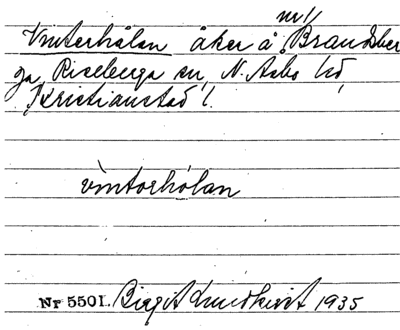 nr 11
Vinterhålan åker å Brandsber
ga, Riseberga sn, N. Åsbo hd,
Kristianstad l.
vìntorhólan
Nr 5501. Birgit Lundkvist 1935